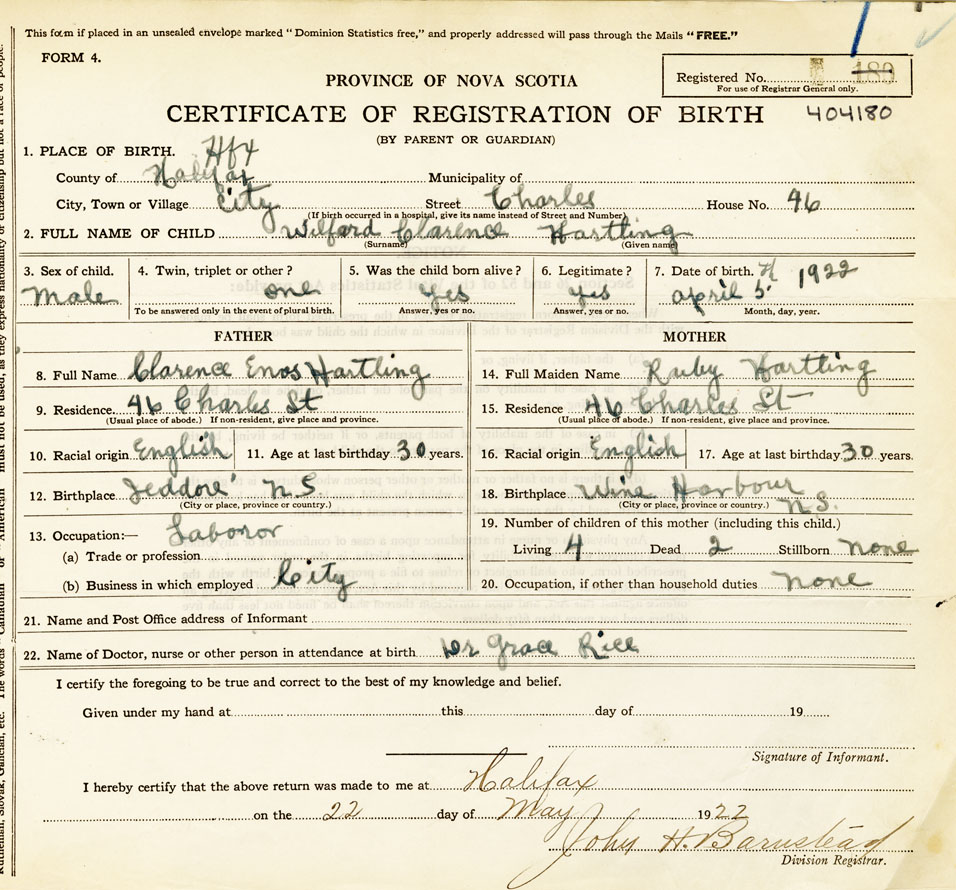 This form if placed in an unsealed envelope marked "Dominion Statistics free," and properly addressed will pass through the Mails "FREE."
FORM 4.
PROVINCE OF NOVA SCOTIA
Registered No. 189
For use of Registrar General only.
CERTIFICATE OF REGISTRATION OF BIRTH 404180
(BY PARENT OR GUARDIAN)
1. PLACE OF BIRTH. Hfx
County of Halifax Municipality of
City, Town or Village City Street Charles House No. 46
(If birth occurred in a hospital, give its name instead of Street and Number)
2. FULL NAME OF CHILD Wilford Clarence Hartling
(Surname) (Given name)
3. Sex of child. Male
4. Twin, triplet or other? one
To be answered only in the event of plural birth.
5. Was the child born alive? yes
Answer, yes or no.
6. Legitimate? yes
Answer, yes or no.
7. Date of birth. april 5th 1922
Month, day, year.
FATHER
8. Full Name Clarence Enos Hartling
9. Residence. 46 Charles St
(Usual place of abode.) If non-resident, give place and province.
10. Racial origin English 11. Age at last birthday 30 years.
12. Birthplace Jeddore N.S.
(City or place, province or country.)
13. Occupation:— Laboror
(a) Trade or profession
(b) Business in which employed City
MOTHER
14. Full Maiden Name Ruby Hartling
15. Residence 46 Charles St
(Usual place of abode.) If non-resident, give place and province.
16. Racial origin English 17. Age at last birthday 30 years.
18. Birthplace Wine Harbour N.S.
(City or place, province or country.)
19. Number of children of this mother (including this child.)
Living 4 Dead 2 Stillborn none
20. Occupation, if other than household duties none
21. Name and Post Office address of Informant
22. Name of Doctor, nurse or other person in attendance at birth Dr Grace Rice
I certify the foregoing to be true and correct to the best of my knowledge and belief.
Given under my hand at this day of 19
Signature of Informant.
I hereby certify that the above return was made to me at Halifax
on the 22 day of May 1922
John H. Barnstead
Division Registrar.